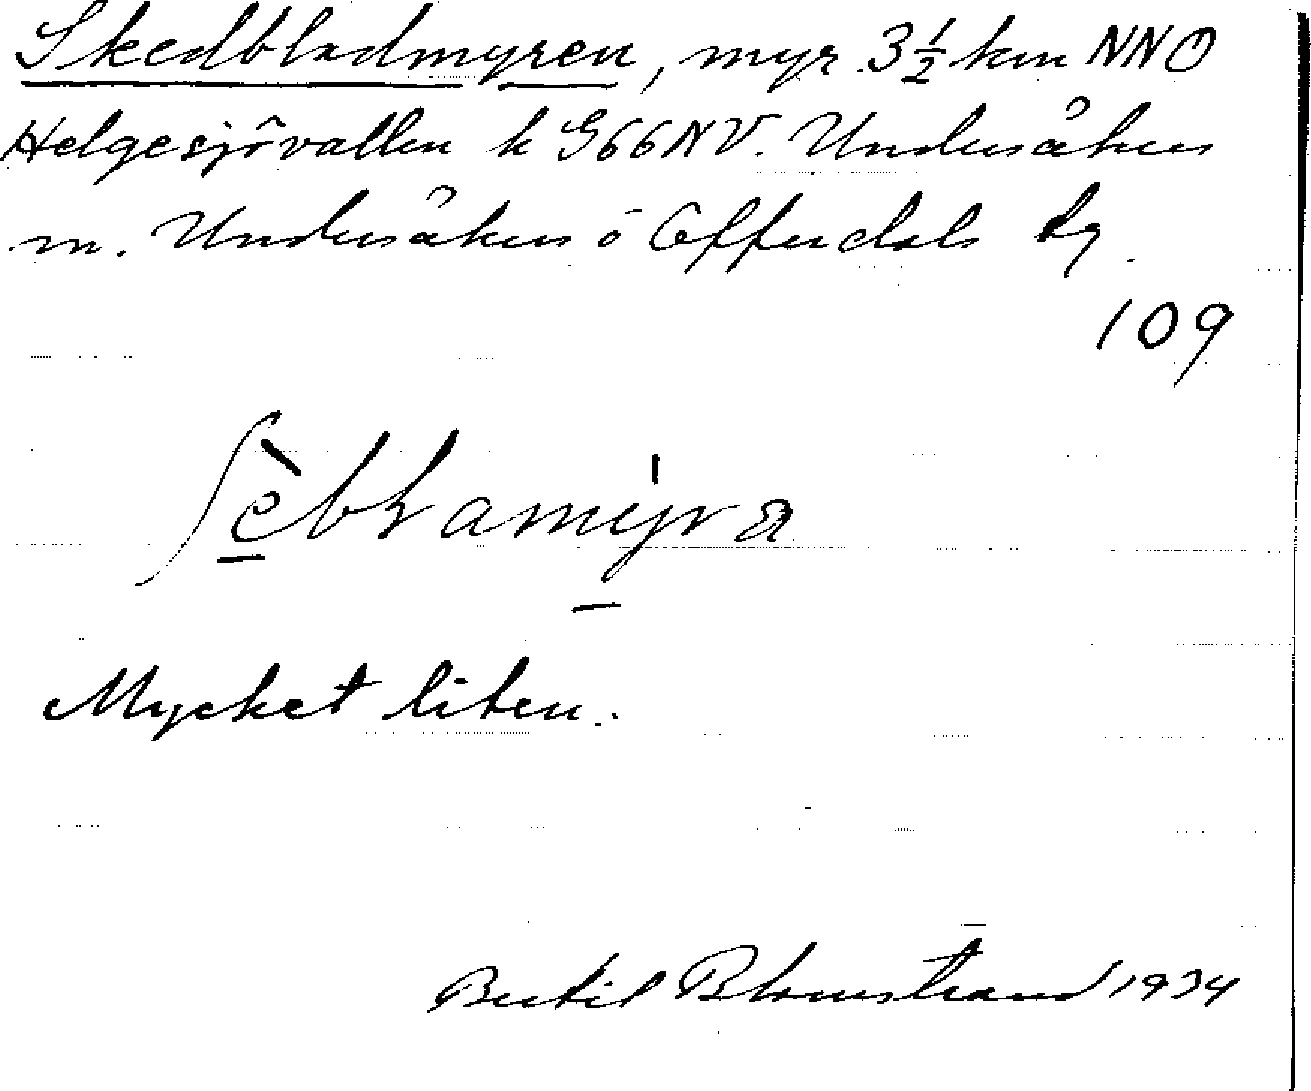 Skedbladmyren, myr 3½ km NNO
Helgesjövallen k 566NV. Undersåkers
m. Undersåkers o Offerdals tg.
109
Mycket liten.
Bertil Blomstrand 1934